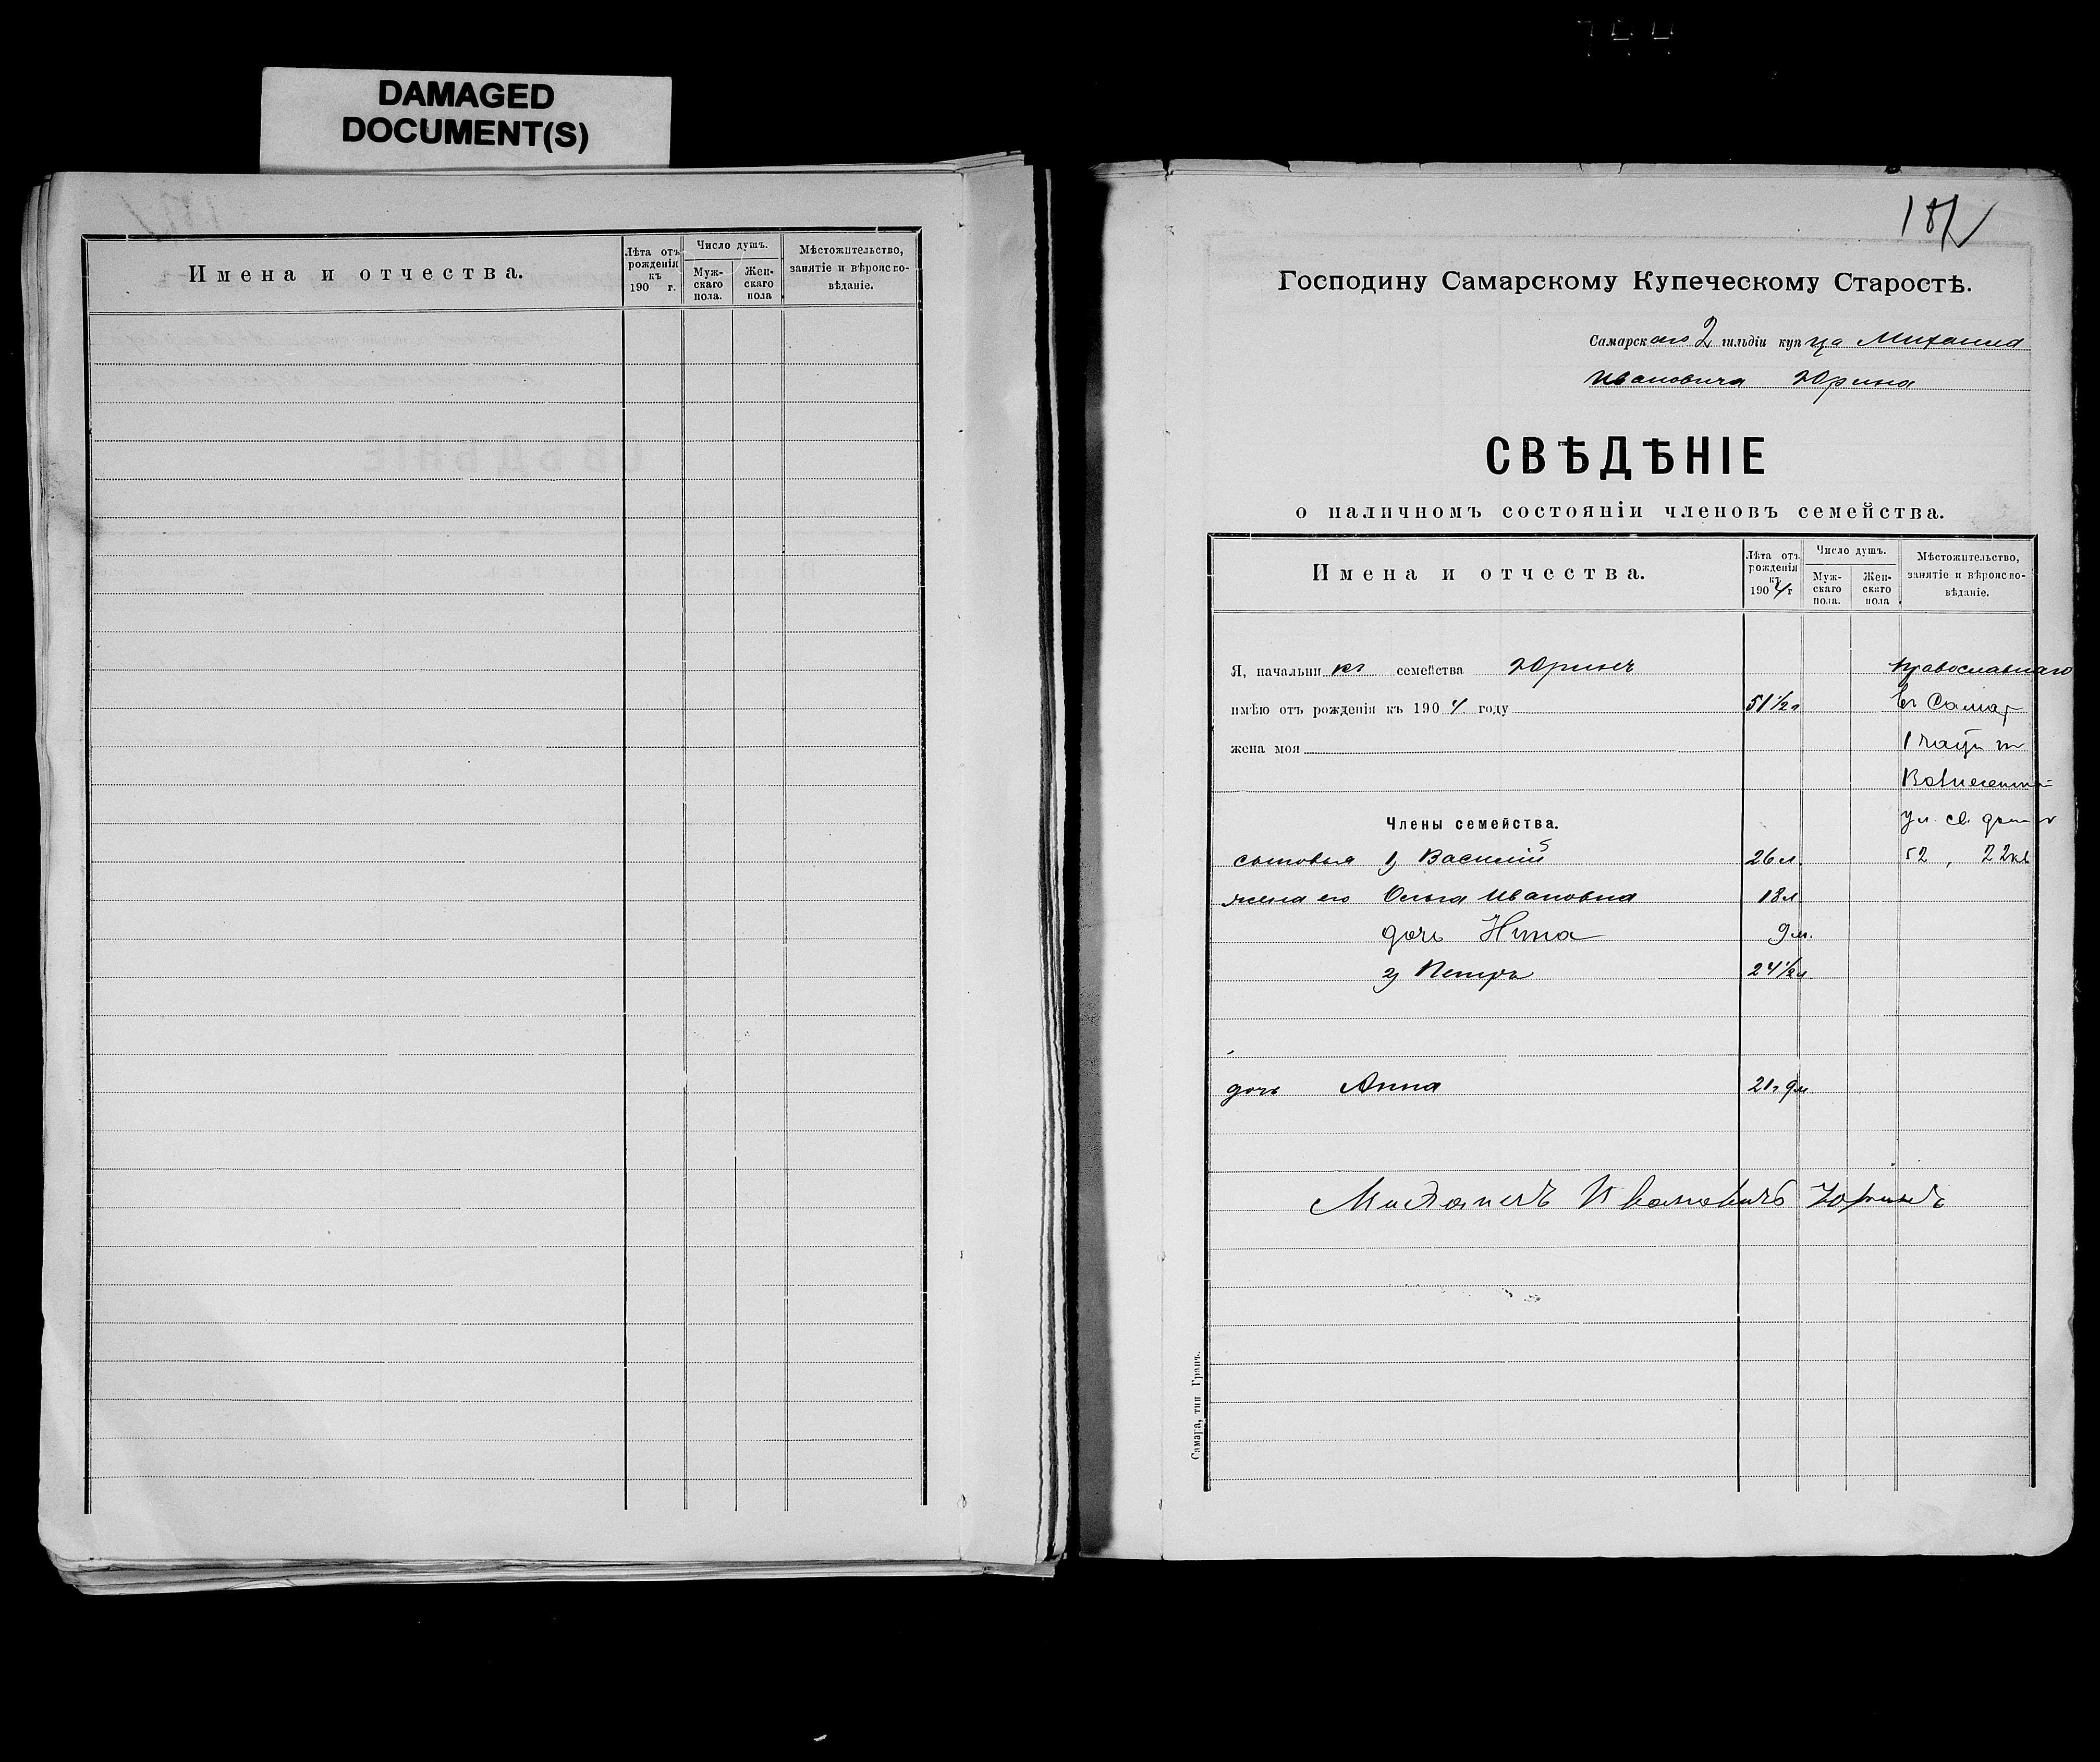 DAMAGED
DOCUMENT(S)
Имена и отчества.
Лѣта отъ рожденія къ 190 г.
Число душъ.
Муж-скаго пола.
Жен-скаго пола
Мѣстожительство, занятіе и вѣроиспо-вѣданіе.
187
Господину Самарскому Купеческому Старостѣ.
Самарскаго 2 гильдіи купца Михаила
Ивановича Юрина
СВѢДѢНІЕ
о наличномъ состояніи членовъ семейства.
Имена и отчества.
Лѣта отъ рожденія къ 1904 г
Число душъ.
Муж-скаго пола.
Жен-скаго пола
Мѣстожительство, занятіе и вѣроиспо-вѣданіе.
Я, начальникъ семейства Юринъ православнаго
имѣю отъ рожденія къ 1904 году 51 1/2 л въ Самар
жена моя 1 части
Вознесенск
Члены семейства. ул. св. домъ
сыновья 1) Василій 26 л. 52, 22 кв
жена его Ольга Ивановна 18 л
дочь Нина 9 м.
2) Петръ 24 1/2 л
дочь Анна 21 г 9 м
Михаилъ Ивановичъ Юринъ
Самара, тип Гранъ.